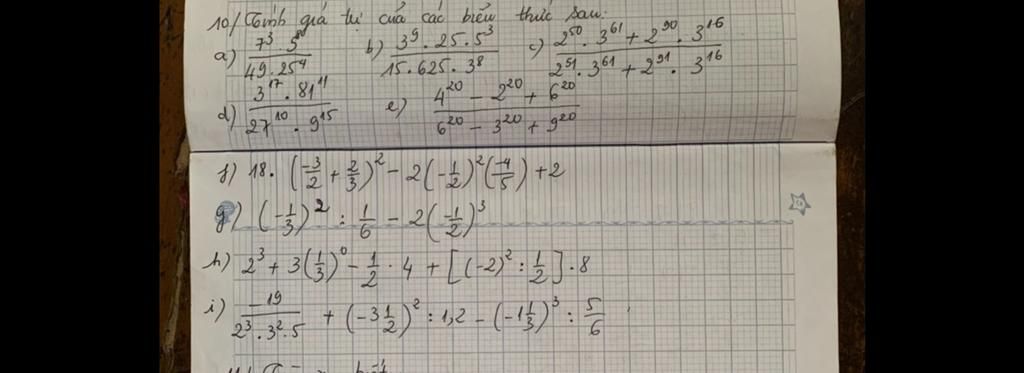 10/ Tính giá trị của các biểu thức sau.
a) \frac{7^3 . 5^8}{49 . 25^4} b) \frac{3^9 . 25 . 5^3}{15 . 625 . 3^8} c) \frac{2^{50} . 3^{61} + 2^{90} . 3^{16}}{2^{51} . 3^{61} + 2^{91} . 3^{16}}
d) \frac{3^{17} . 81^{11}}{27^{10} . 9^{15}} e) \frac{4^{20} - 2^{20} + 6^{20}}{6^{20} - 3^{20} + 9^{20}}
f) 18. (\frac{-3}{2} + \frac{2}{3})^2 - 2(-\frac{1}{2})^2(\frac{-4}{5}) + 2
g) (-\frac{1}{3})^2 : \frac{1}{6} - 2(\frac{-1}{2})^3
h) 2^3 + 3(\frac{1}{3})^0 - \frac{1}{2} . 4 + [(-2)^2 : \frac{1}{2}] . 8
i) \frac{-19}{2^3 . 3^2 . 5} + (-3\frac{1}{2})^2 : 1,2 - (-1\frac{1}{3})^3 : \frac{5}{6}